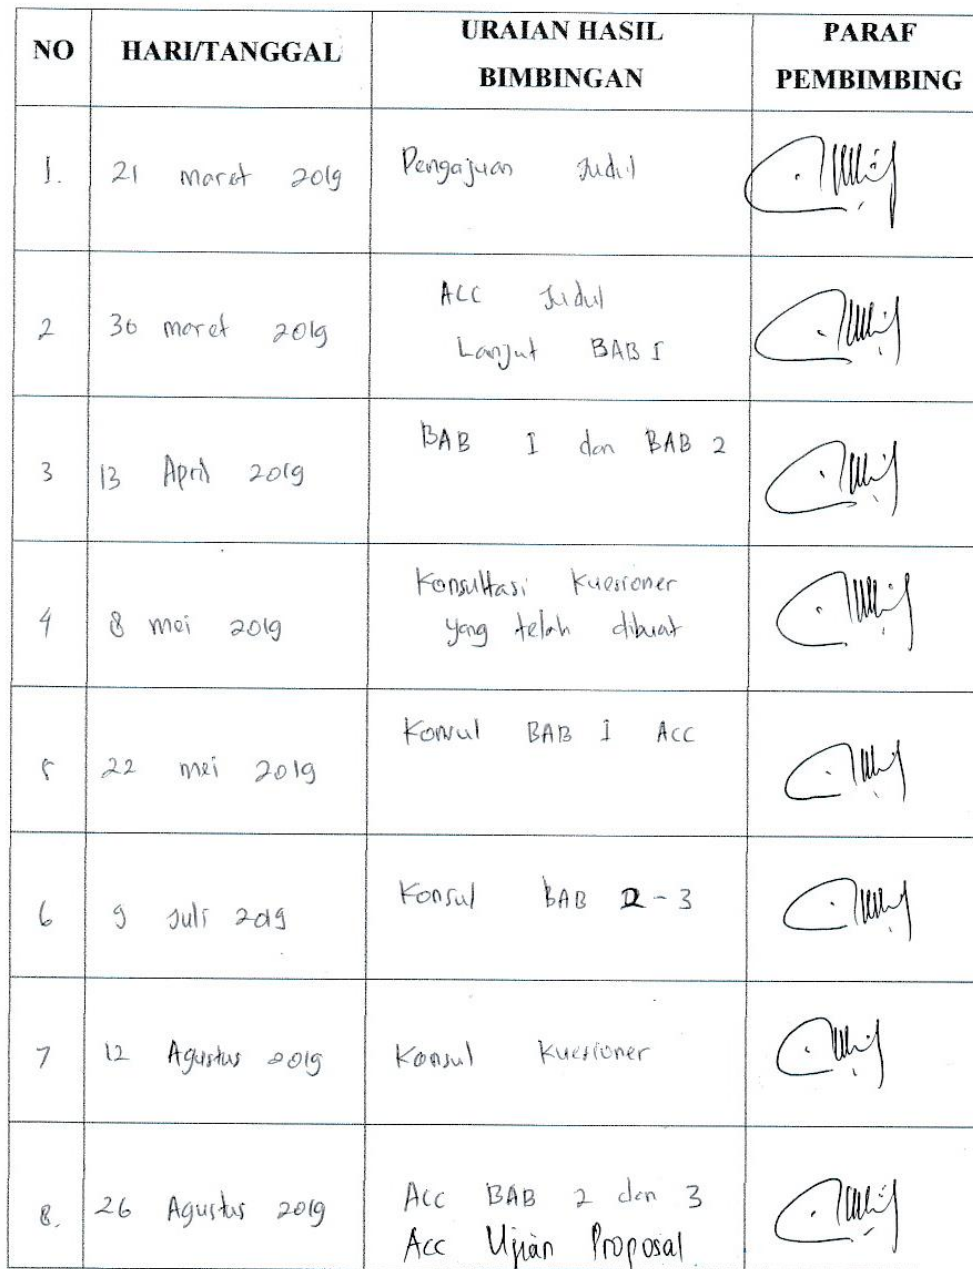 NO HARI/TANGGAL URAIAN HASIL BIMBINGAN PARAF PEMBIMBING
1. 21 maret 2019 Pengajuan Judul
2 30 maret 2019 ACC Judul
Lanjut BAB I
3 13 April 2019 BAB I dan BAB 2
4 8 mei 2019 Konsultasi Kuesioner
yang telah dibuat
5 22 mei 2019 Konsul BAB I Acc
6 9 Juli 2019 Konsul BAB 2-3
7 12 Agustus 2019 Konsul Kuesioner
8. 26 Agustus 2019 Acc BAB 2 dan 3
Acc Ujian Proposal